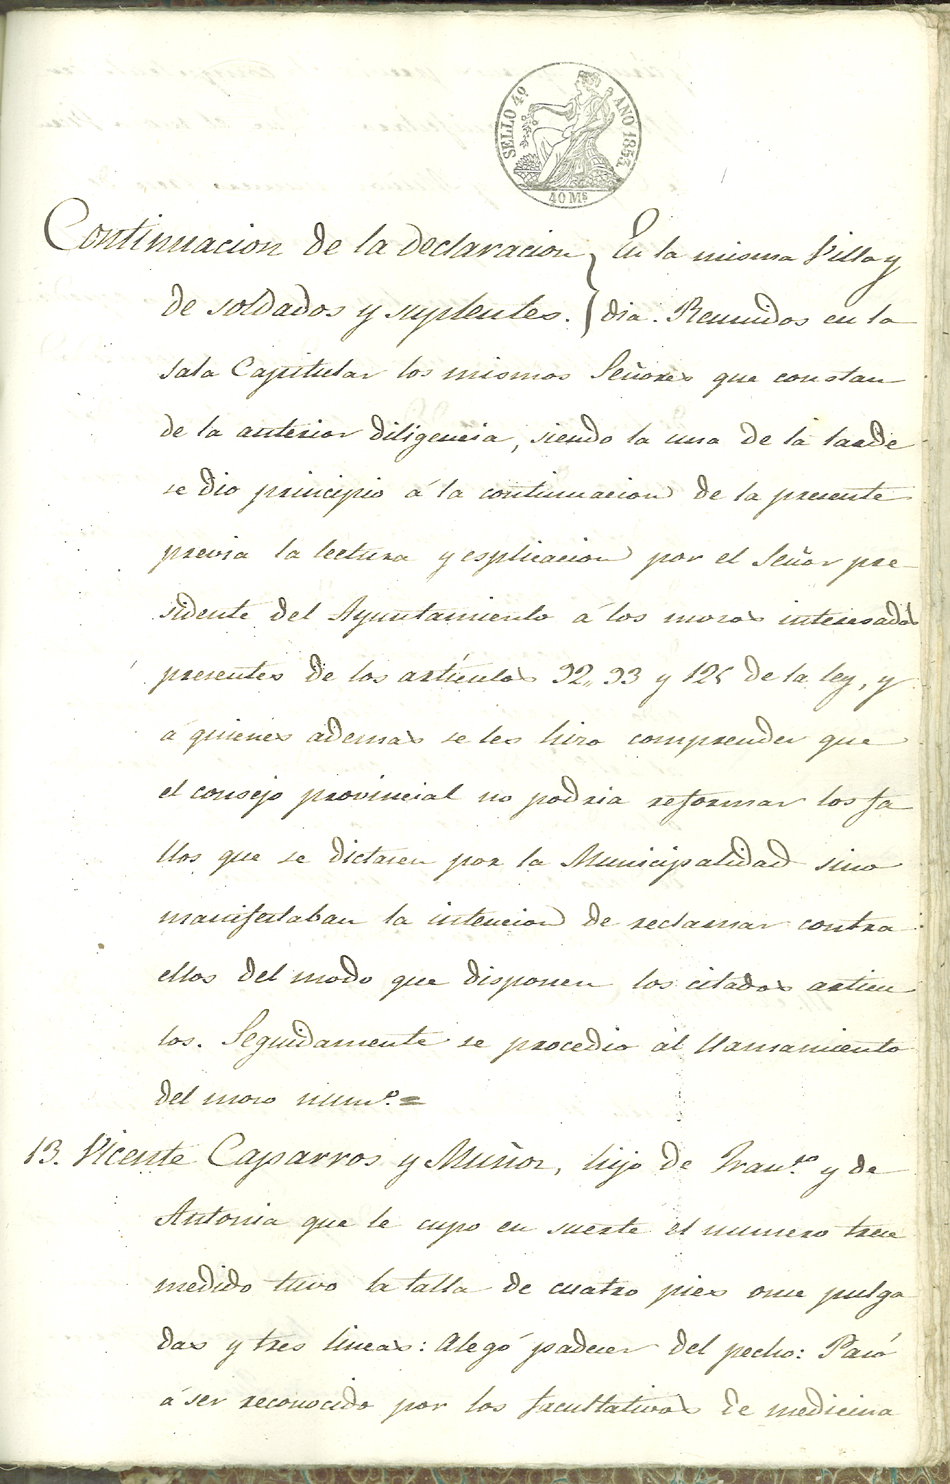 SELLO 4º AÑO 1853.
40 Mˢ
Continuacion de la declaracion } En la misma Villa y
de soldados y suplentes. } dia. Reunidos en la
sala Capitular los mismos Señores que constan
de la anterior diligencia, siendo la una de la tarde
se dio principio á la continuacion de la presente
previa la lectura y esplicacion por el Señor pre-
sidente del Ayuntamiento á los mozos interesados
presentes de los artículos 92,, 93 y 125 de la ley, y
á quienes ademas se les hizo comprender que
el consejo provincial no podria reformar los fa
llos que se dictasen por la Municipalidad sino
manifestaban la intencion de reclamar contra
ellos del modo que disponen los citados articu
los. Seguidamente se procedio al llamamiento
del mozo num.º =
13. Vicente Caparros y Muñoz, hijo de Fran.co y de
Antonia que le cupo en suerte el numero trece
medido tuvo la talla de cuatro pies once pulga
das y tres lineas: Alegó padecer del pecho: Pasó
á ser reconocido por los facultativos de medicina